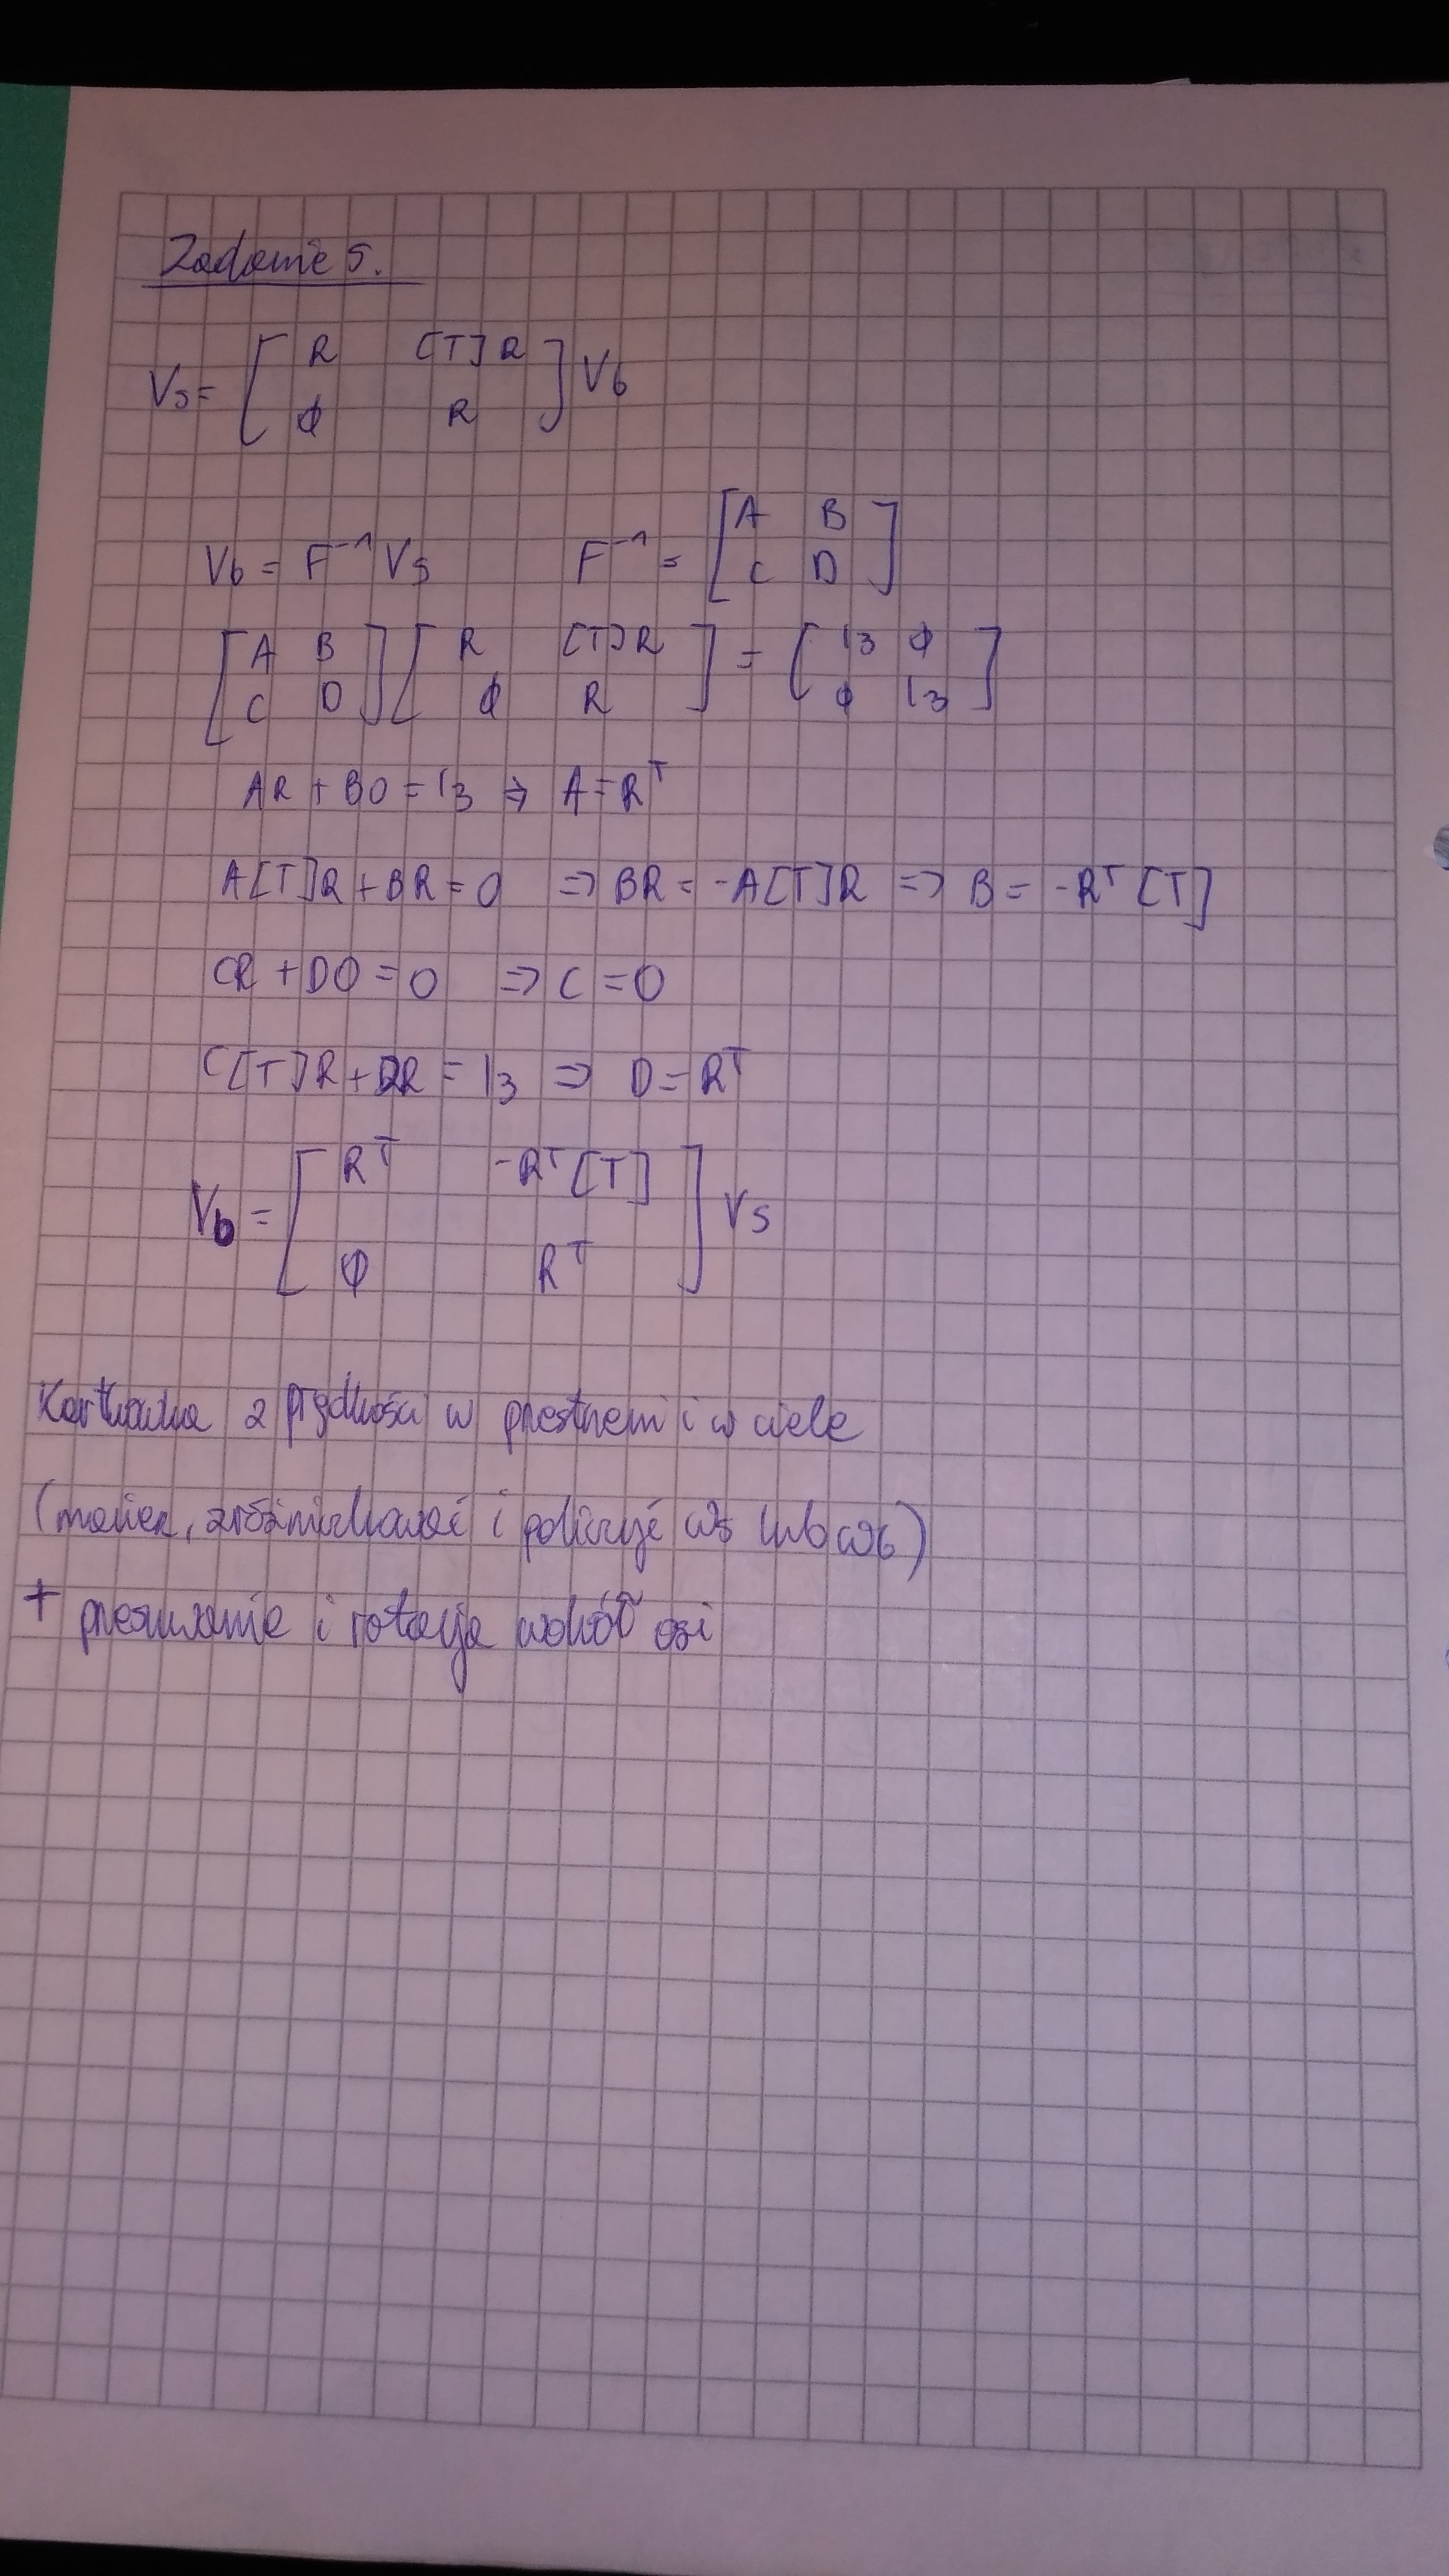 Zadanie 5.
Vs = [ R [T]R ; ϕ R ] Vb
Vb = F⁻¹ Vs F⁻¹ = [ A B ; C D ]
[ A B ; C D ] [ R [T]R ; ϕ R ] = [ I3 ϕ ; ϕ I3 ]
AR + B0 = I3 ⇒ A = Rᵀ
A[T]R + BR = 0 ⇒ BR = -A[T]R ⇒ B = -Rᵀ[T]
CR + D0 = 0 ⇒ C = 0
C[T]R + DR = I3 ⇒ D = Rᵀ
Vb = [ Rᵀ -Rᵀ[T] ; ϕ Rᵀ ] Vs
Kartkówka z prędkości w przestrzeni i w ciele
(macierz, zróżniczkować i policzyć ωs lub ωb)
+ przesuwanie i rotacja wokół osi